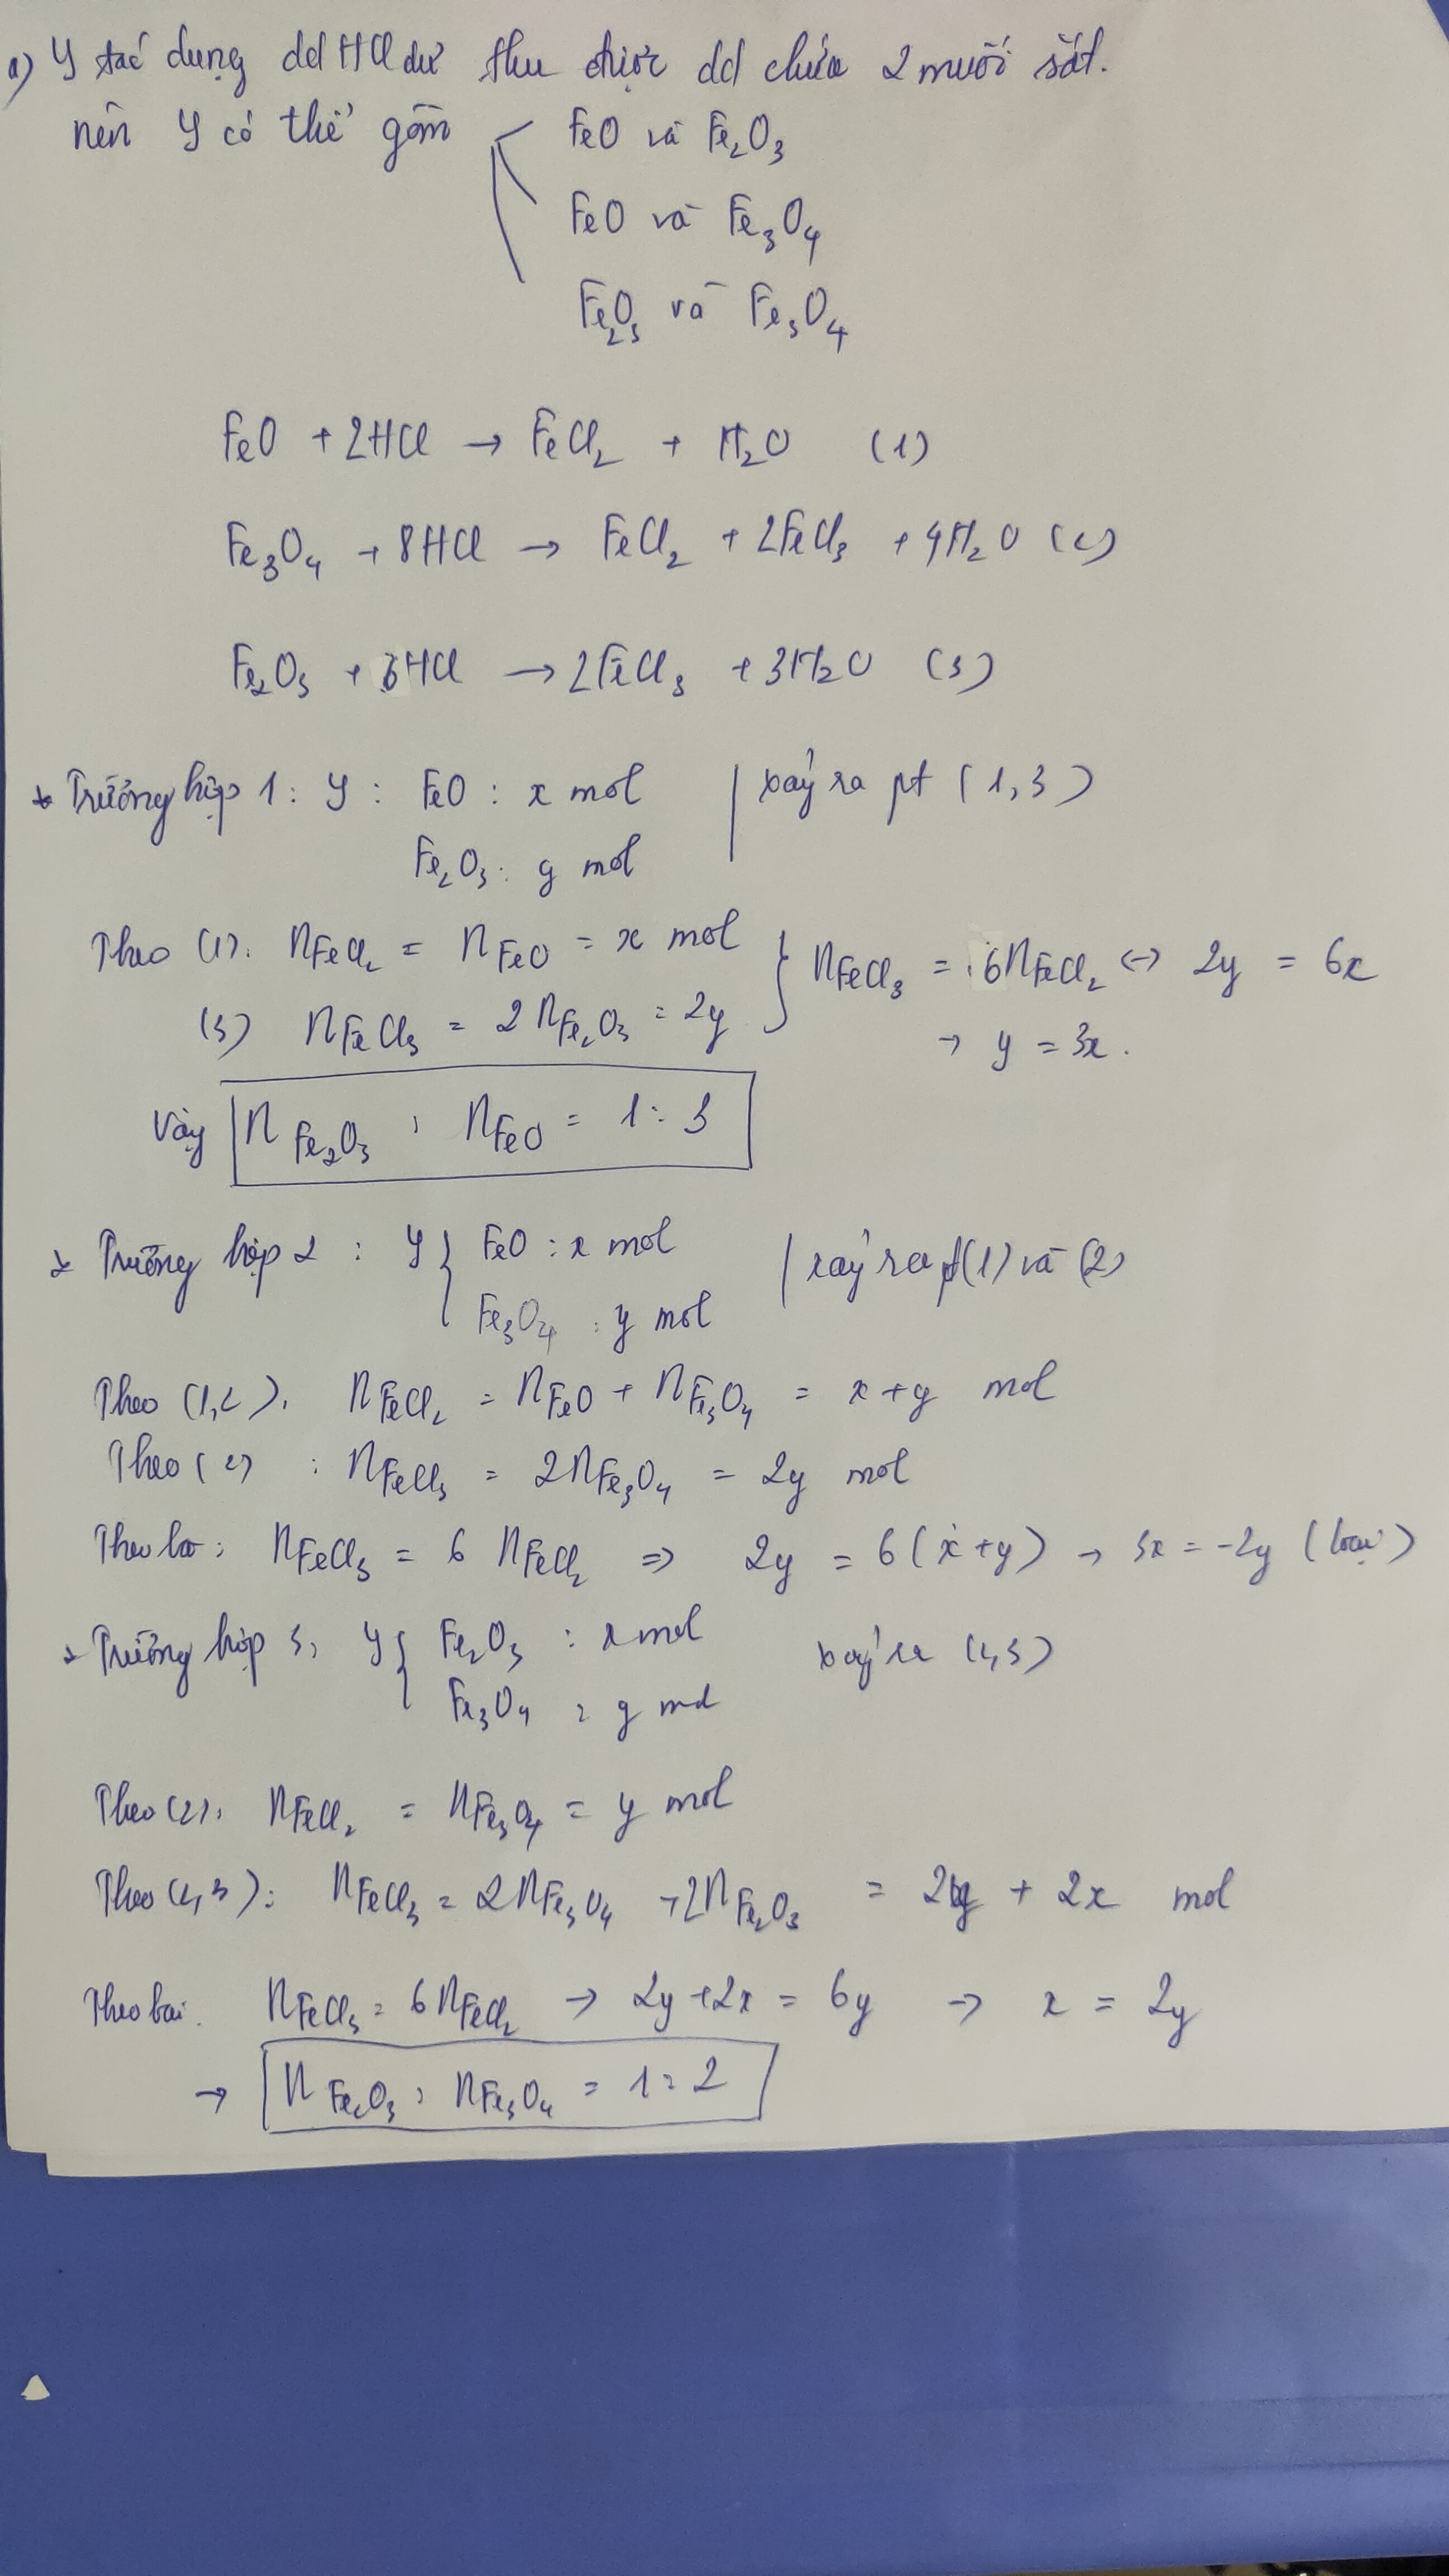 a) Y tác dụng dd HCl dư thu được dd chứa 2 muối sắt.
nên Y có thể gồm FeO và Fe₂O₃
FeO và Fe₃O₄
Fe₂O₃ và Fe₃O₄
FeO + 2HCl → FeCl₂ + H₂O (1)
Fe₃O₄ + 8HCl → FeCl₂ + 2FeCl₃ + 4H₂O (2)
Fe₂O₃ + 6HCl → 2FeCl₃ + 3H₂O (3)
* Trường hợp 1: Y : FeO : x mol | xảy ra pt (1,3)
Fe₂O₃ : y mol
Theo (1): nFeCl₂ = nFeO = x mol } nFeCl₃ = 6nFeCl₂ <-> 2y = 6x
(3) nFeCl₃ = 2nFe₂O₃ = 2y → y = 3x.
Vậy nFe₂O₃ : nFeO = 1 : 3
* Trường hợp 2 : Y { FeO : x mol | xảy ra pt (1) và (2)
Fe₃O₄ : y mol
Theo (1,2): nFeCl₂ = nFeO + nFe₃O₄ = x + y mol
Theo (2) : nFeCl₃ = 2nFe₃O₄ = 2y mol
Theo bài: nFeCl₃ = 6 nFeCl₂ => 2y = 6(x+y) → 3x = -2y (loại)
* Trường hợp 3: Y { Fe₂O₃ : x mol xảy ra (2,3)
Fe₃O₄ : y mol
Theo (2): nFeCl₂ = nFe₃O₄ = y mol
Theo (2,3): nFeCl₃ = 2nFe₃O₄ + 2nFe₂O₃ = 2y + 2x mol
Theo bài. nFeCl₃ = 6nFeCl₂ → 2y + 2x = 6y → x = 2y
→ nFe₂O₃ : nFe₃O₄ = 1 : 2